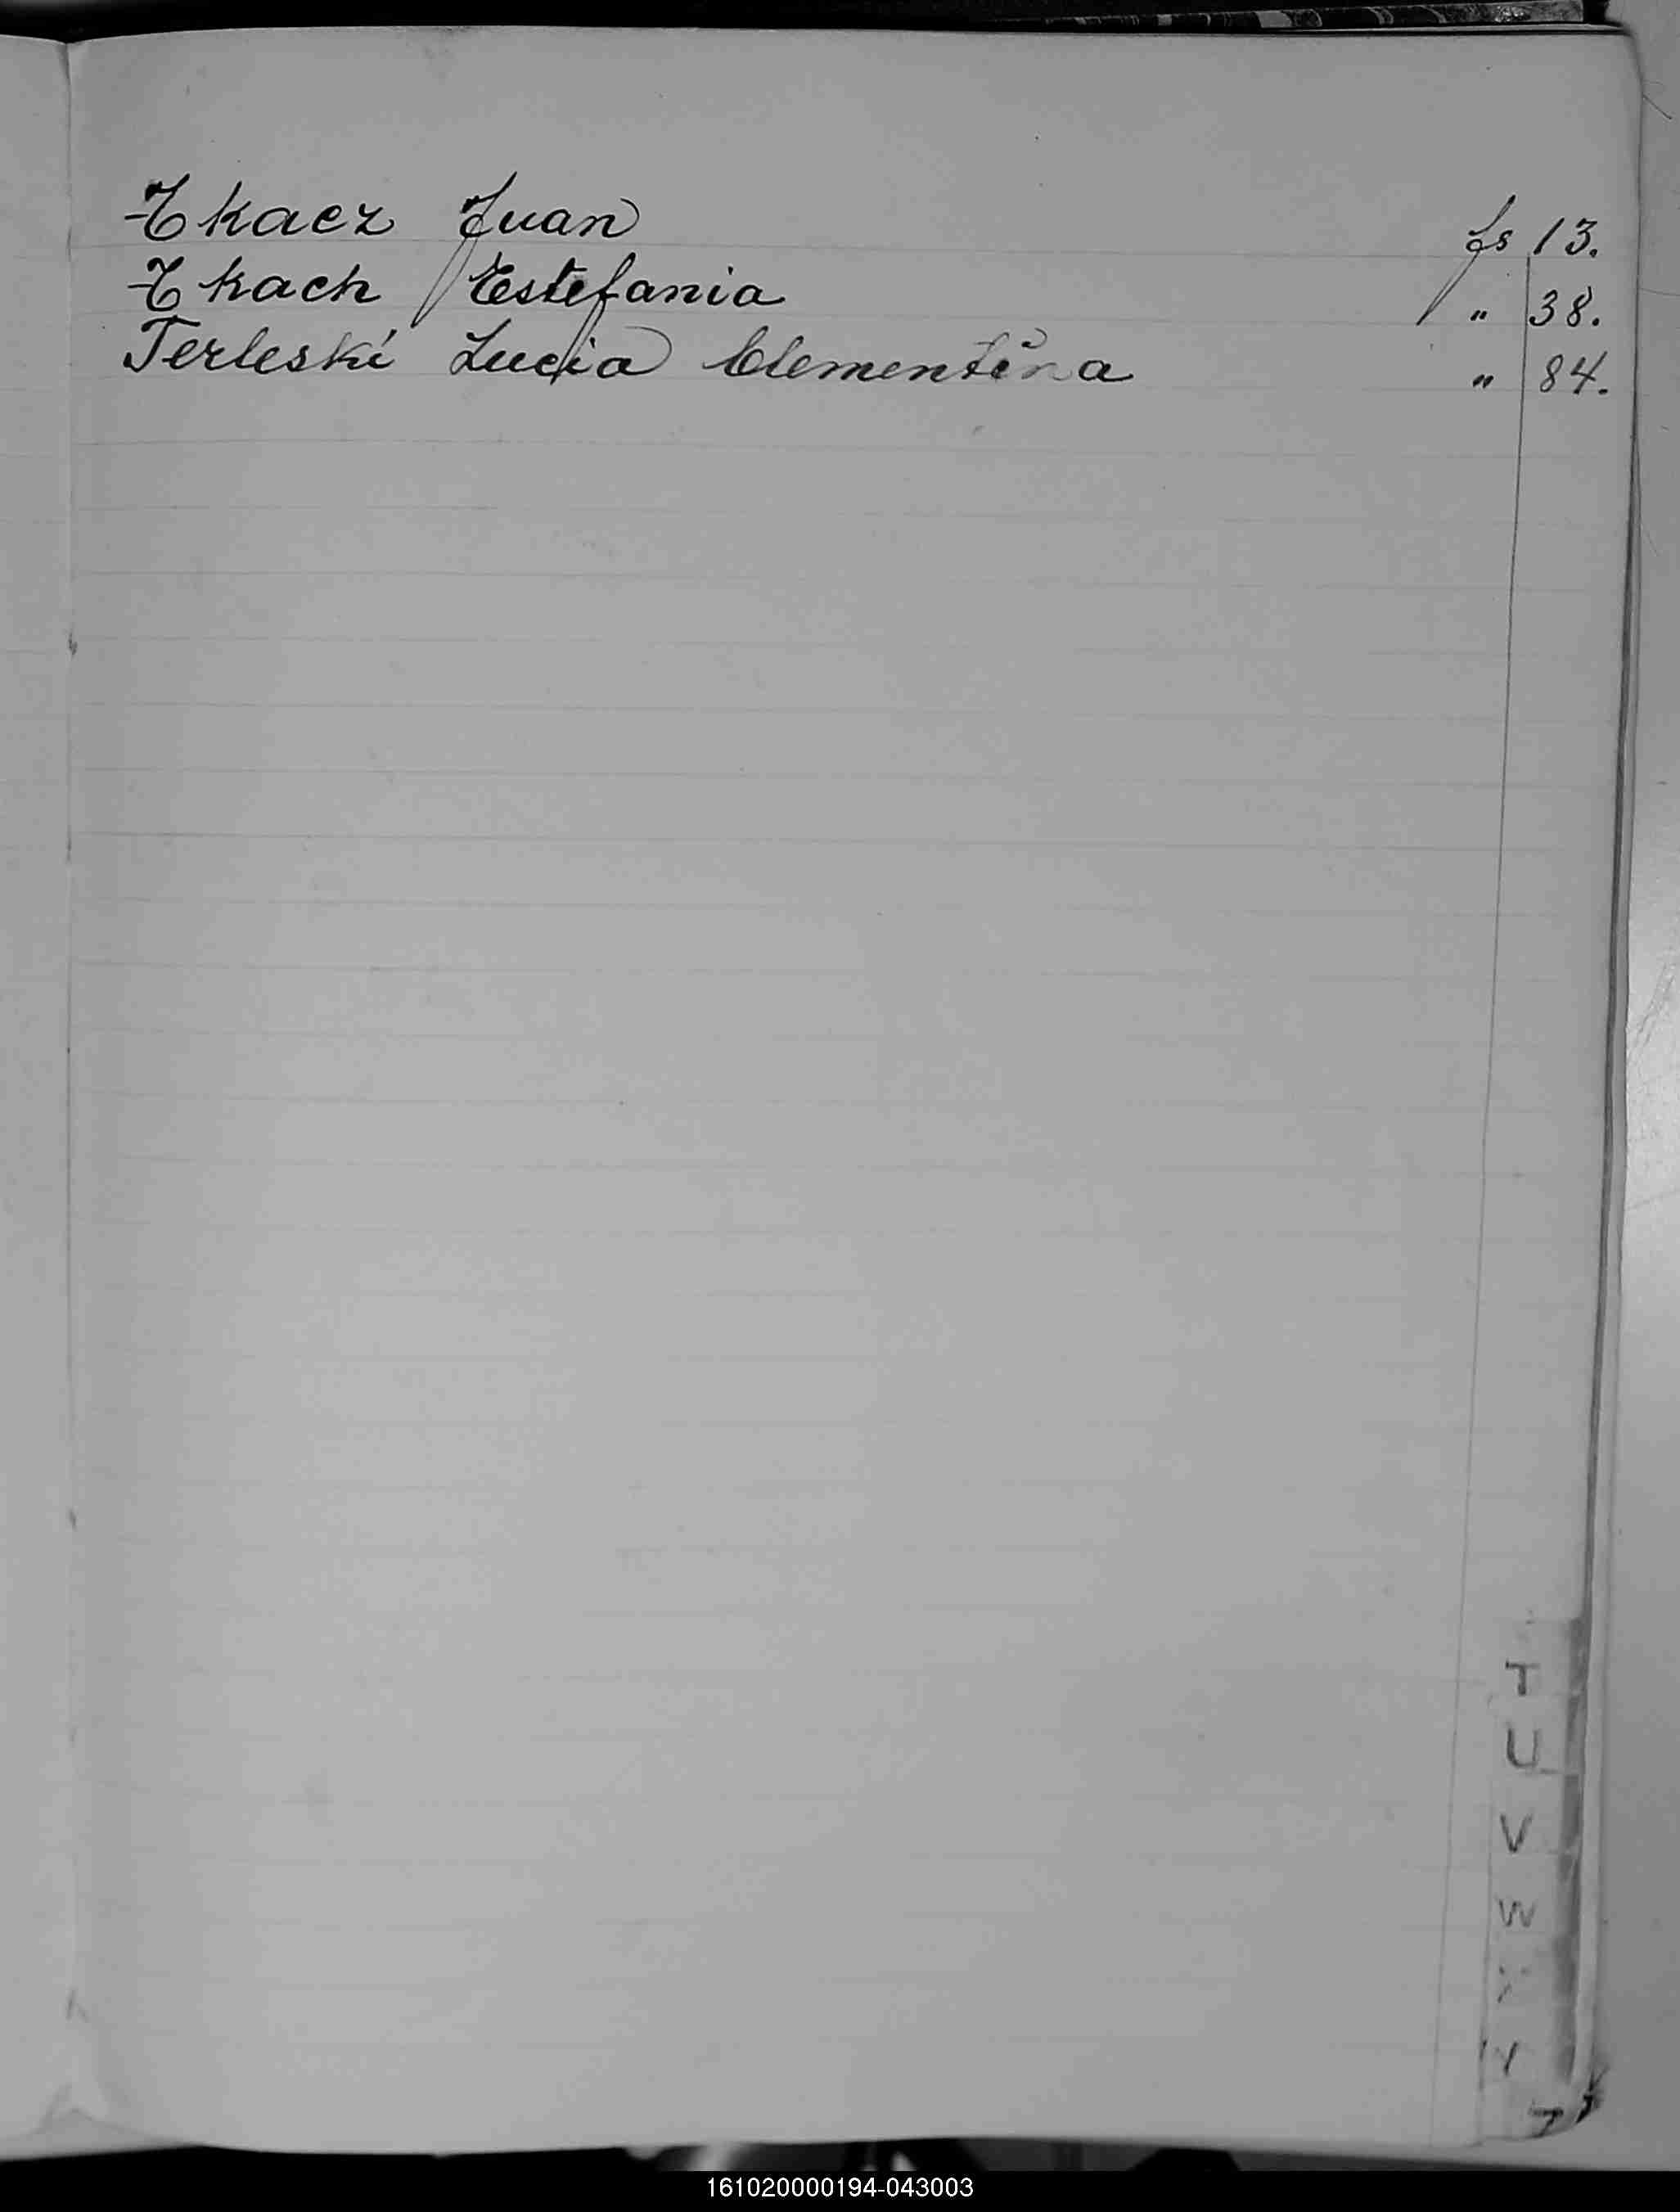 Tkacz Juan fs 13.
Tkach Estefania " 38.
Terleski Lucia Clementina " 84.
T
U
V
W
X
Y
161020000194-043003